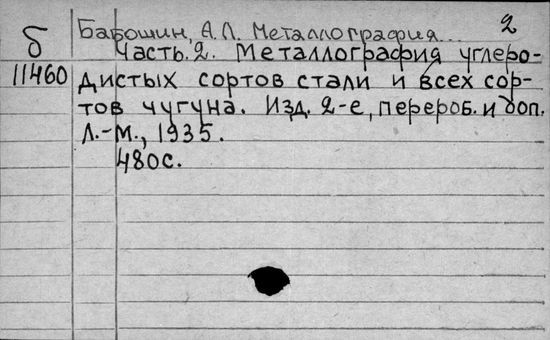 2
Бабошин, А.Л. Металлография...
б Часть.2. Металлография углеро-
11460 дистых сортов стали и всех сор-
тов чугуна. Изд. 2-е, перероб. и доп.
Л.-М., 1935.
480с.